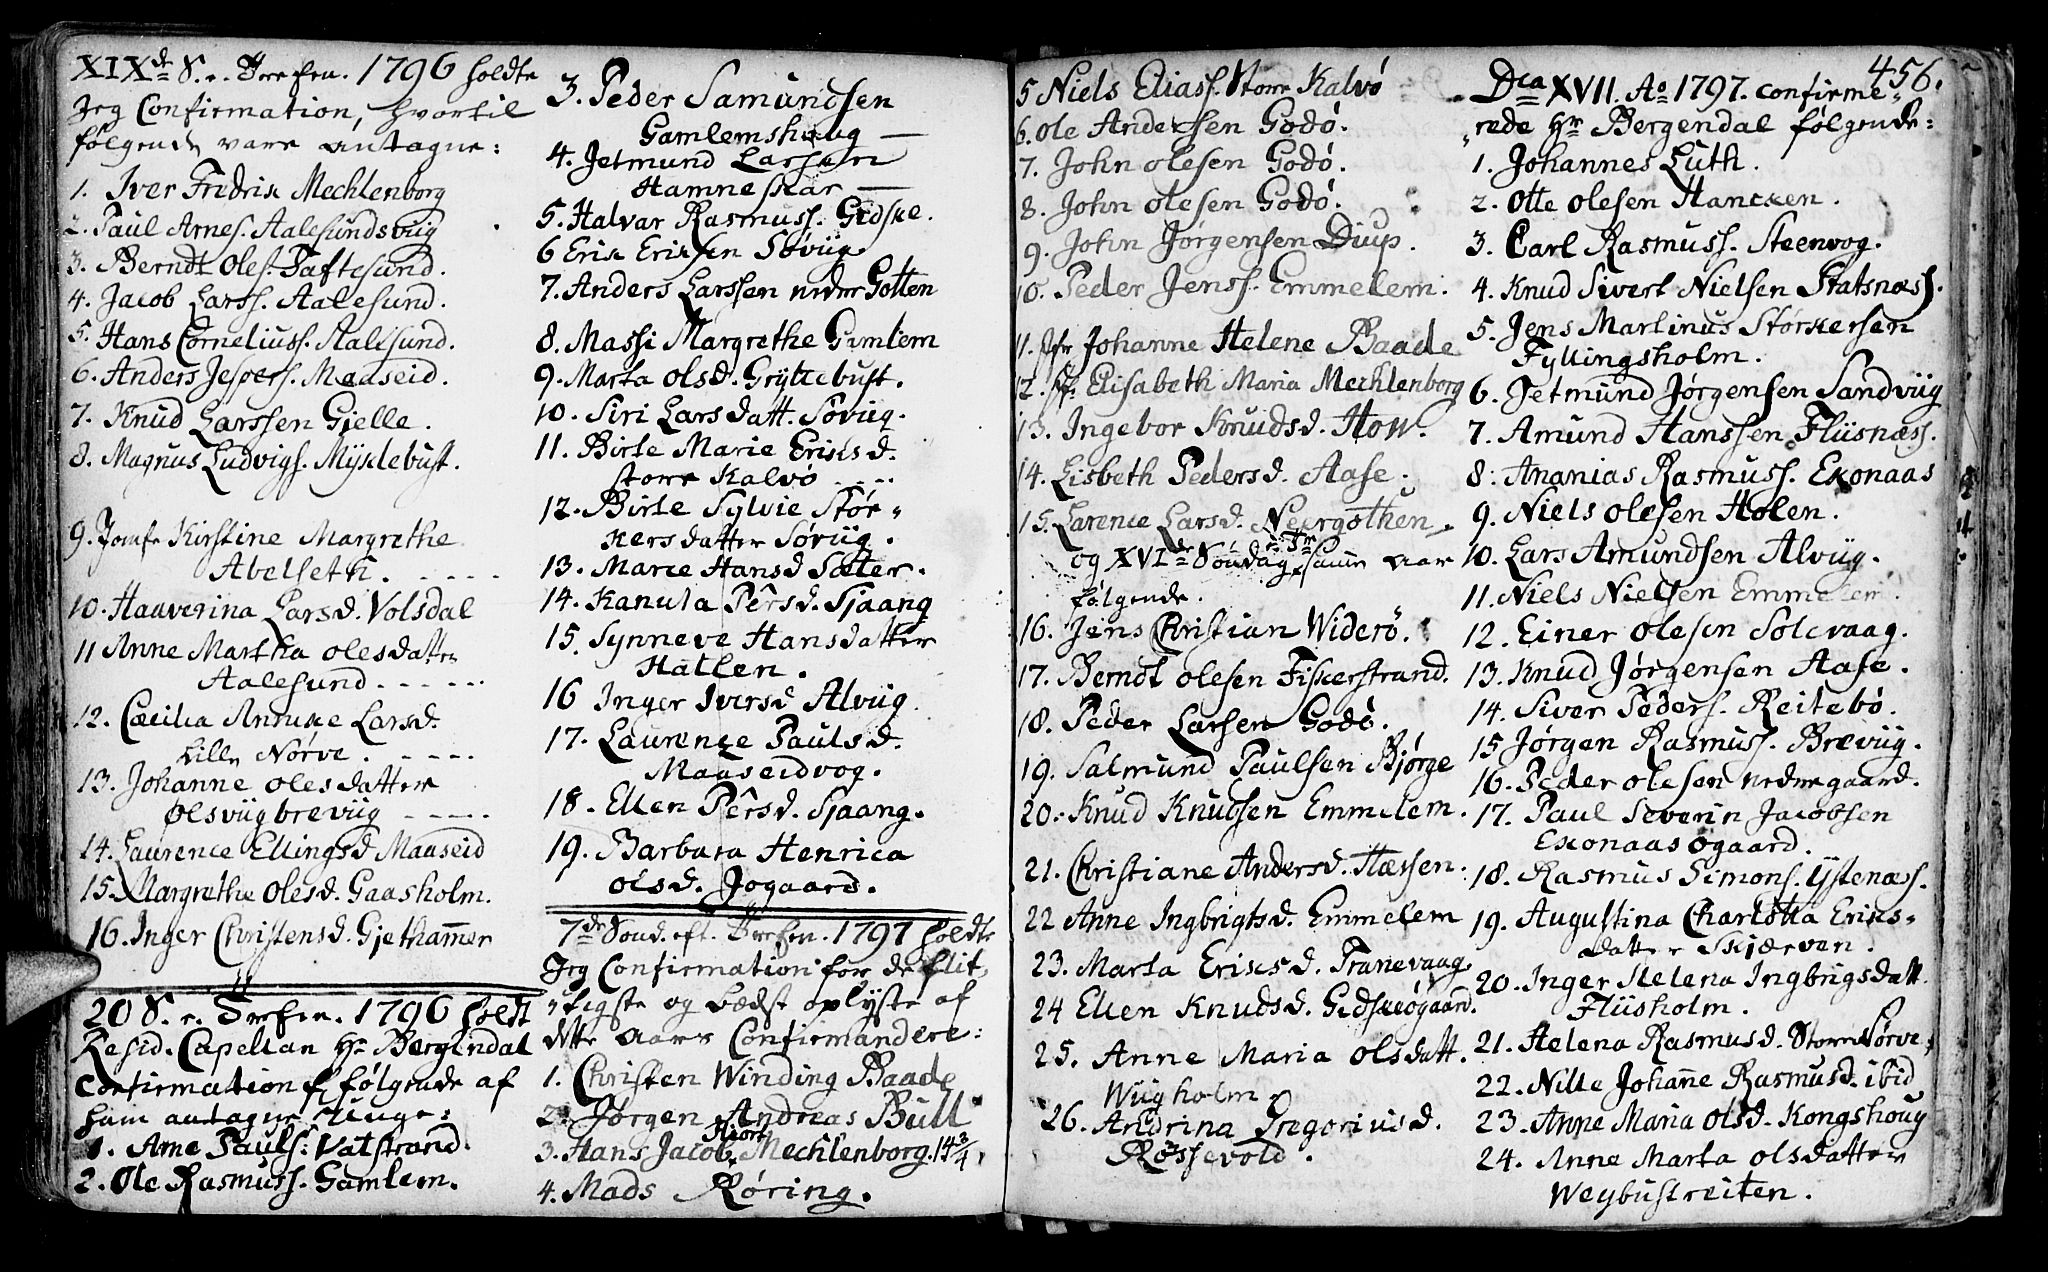 XIXde S. e. Trefen. 1796 holdte
Jeg Confirmation, hvortil
følgende vare antagne:
1. Iver Fredrik Mechlenborg
2. Paul Arnes. Aalesundsvug
3. Berndt Oles. Taftesund.
4. Jacob Larss. Aalesund.
5. Hans Corneliuss. Aalesund.
6. Anders Jespers. Maaseid.
7. Knud Larssen Gjelle.
8. Magnus Ludvigs. Myklebust.
9. Jomfr Kirstine Margrethe
Abelseth.
10. Haaverina Larsd. Volsdal
11 Anne Martha olesdatter
Aalesund
12. Cæcilia Annike Larsd.
Lille Nørve.
13. Johanne olesdatter
Ølsviigbreviig
14. Laurence Ellingsd Maaseid
15. Margrethe Olesd. Gaasholm.
16. Inger Christensd. Gjetham̄er
20 S. e. Trefen. 1796 holdt
Resid. Capellan Hr Bergendal
Confirmation f følgende af
ham antagne Unge:
1. Arne Pauls. Vatstrand.
2. Ole Rasmuss. Gamlem.
3. Peder Samundsen
Gamlemshaug
4. Jetmund Larssen
Hamneskar
5. Halvar Rasmuss. Gidske.
6 Erik Eriksen Søviig
7. Anders Larssen neder Gotten
8. Massi Margrethe Gamlem
9. Marta olsd. Gryttebust.
10. Siri Larsdatt. Søviig.
11. Birte Marie Eriksd.
store Kalvø
12. Birte Sylvie Stør-
kersdatter Søviig.
13. Maree Hansd Sæter.
14. Kanuta Pêrsd. Sjaang
15. Synneve Hansdatter
Hatlen.
16 Inger Iversd Alviig.
17. Laurence Paulsd.
Maaseidvog.
18. Ellen Pêrsd. Sjaang.
19. Barbara Henrica
olsd. Jogaard.
7de Sond. eft. Trefen. 1797 holdte
Jeg Confirmation for de flit-
tigste og bedst oplyste af
dette Aars Confirmandere:
1. Christen Winding Baade
2. Jørgen Andreas Bull
3. Hans Jacob Hiort Mechlenborg. 14 3/4
4. Mads Røring.
5 Niels Eliass. Store Kalvø
6. Ole Andersen Godø.
7. John olesen Godø.
8. John olesen Godø.
9. John Jørgensen Diup.
10. Peder Jenss. Emmelem.
11. Jfr Johanne Helene Baade
12. Jfr. Elisabeth Maria Mechlenborg
13. Ingebor Knudsd. How.
14. Lisbeth Pedersd. Aase.
15. Larence Larsd. Neergothen.
og XVIde Søndag e. Tr. samme Aar
følgende.
16. Jens Christian Widerö.
17. Berndt olesen Fiskerstrand.
18. Peder Larsen Godø.
19. Salmund Paulsen Bjørge
20. Knud Knudsen Emmelem.
21. Christiane Andersd. Hæssen.
22 Anne Ingbrigtsd. Emmelem
23. Marta Eriksd. Tranevaag
24 Ellen Knudsd. Gidskeøgaard.
25. Anne Maria olsdatt.
Wiigholm
26. Andrina Gregoriusd.
Røssevold.
456.
Dca XVII. Ao 1797. confirme-
rede Hr Bergendal følgende:
1. Johannes Luth.
2. Otte olesen Hancken.
3. Carl Rasmuss. Steenvog.
4. Knud Sivert Nielsen Statsnæss.
5. Jens Martinus Størkersen
Fyllingsholm.
6. Jetmund Jørgensen Sandviig
7. Amund Hanssen Fliisnæss.
8. Ananias Rasmuss. Exonaas
9. Niels olesen Holen.
10. Lars Amundsen Alviig.
11. Niels Nielsen Emmelem.
12. Einer olesen Solevaag.
13. Knud Jørgensen Aase.
14. Siver Peders. Reitebø.
15 Jørgen Rasmuss. Breviig.
16. Peder olesen nedregaard.
17. Paul Severin Jacobsen
Exonaasøgaard.
18. Rasmus Simons. Ystenæs.
19. Augustina Charlotta Eriks-
datter Skjærvan.
20. Inger Helena Ingbrigsdatt.
Fliisholm.
21. Helena Rasmusd. Store Nørve
22. Nille Johan̄e Rasmusd. ibid
23. Anne Maria olsd. Kongshoug
24. Anne Marta olsdatter
Weybustreiten.